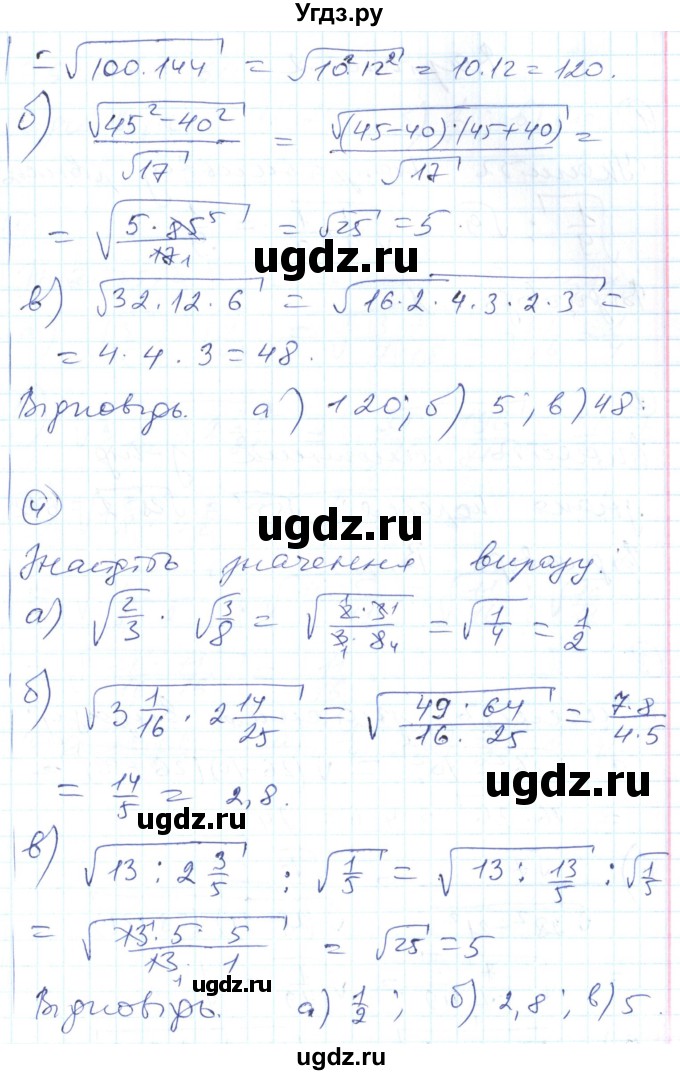 Угдз.ру
= √100.144 = √10².12² = 10.12 = 120.
б) √45²-40² / √17 = √(45-40)·(45+40) / √17 =
= √5·85⁵ / 17₁ = √25 = 5.
ugdz.ru
ugdz.ru
в) √32.12.6 = √16·2·4·3·2·3 =
= 4·4.3 = 48.
Відповідь. а) 120; б) 5; в) 48.
4
ugdz.ru
Знайдіть значення виразу:
а) √2/3 · √3/8 = √2·3/3·8 = √1/4 = 1/2
б) √3 1/16 · 2 14/25 = √49·64/16·25 = 7·8/4·5
= 14/5 = 2,8.
ugdz.ru
ugdz.ru
в) √13 : 2 3/5 : √1/5 = √13 : 13/5 : √1/5
= √13·5·5/13·1 = √25 = 5
ugdz.ru
Відповідь. а) 1/2; б) 2,8; в) 5.
ugdz.ru